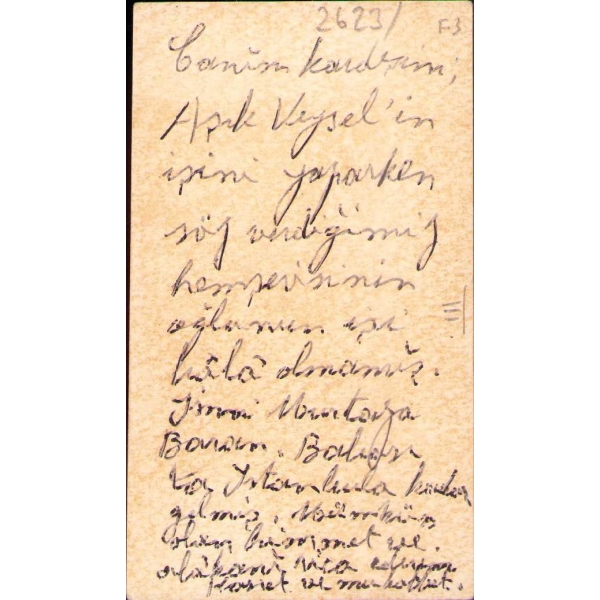 2623/
F3
Canım kardeşim,
Aşık Veysel'in
işini yaparken
söz verdiğimiz
hemşerisinin
oğlunun işi
hâlâ olmamış.
İsmi Murtaza
Baran. Bakın
ta İstanbula kadar
gelmiş. Mümkün
olan himmet ve
alâkanı rica ederim
ve muhabbet.